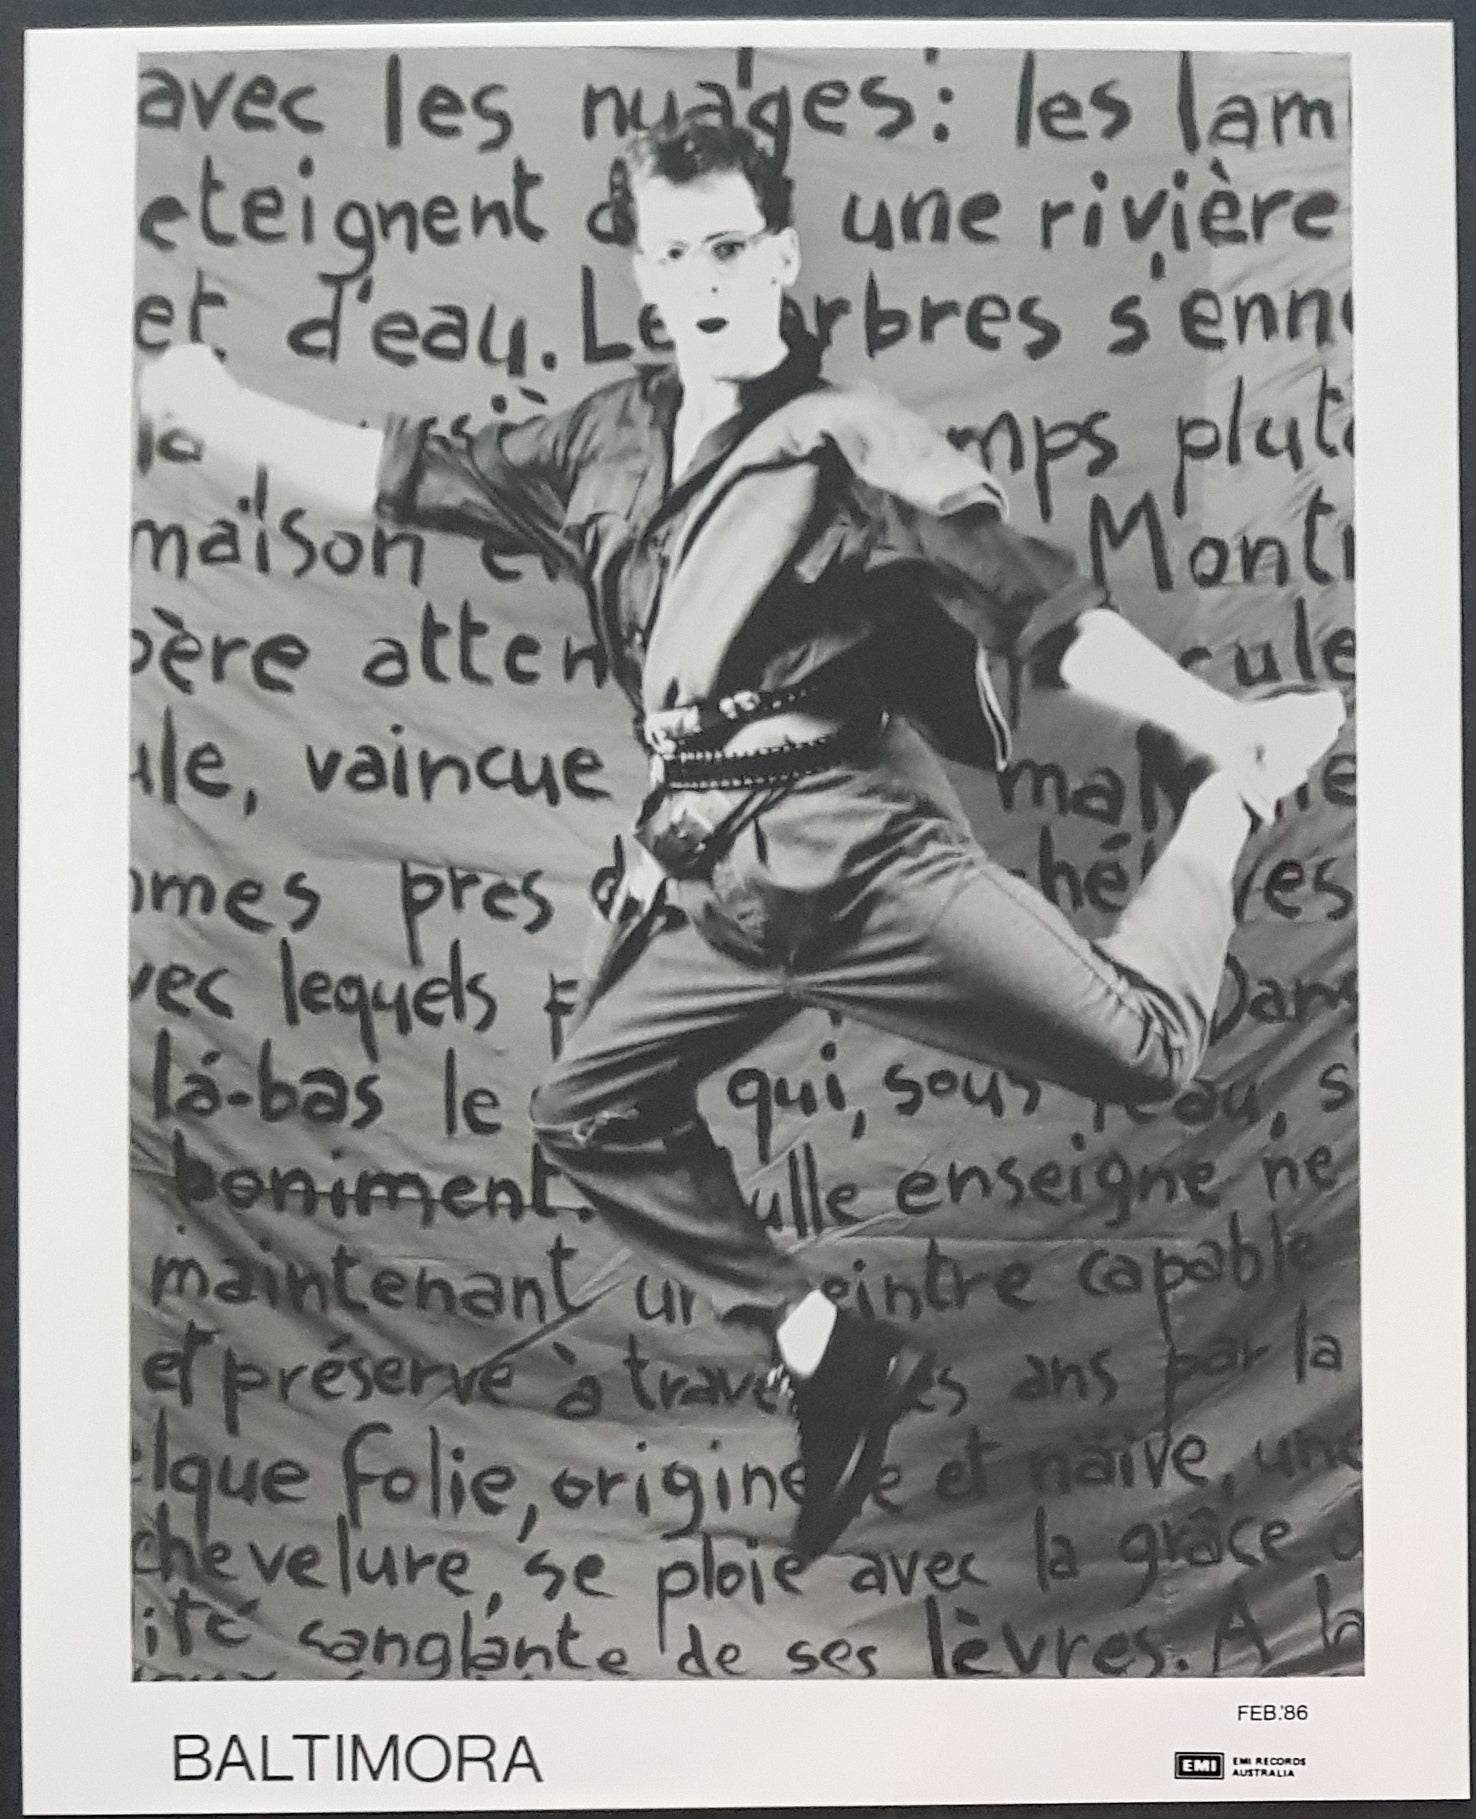 avec les nuages: les lam
eteignent d une rivière
et d'eau. Le arbres s'enn
la ssiè mps plut
maison Mont
père atten cule
ule, vaincue mal
mmes pres hé res
vec lequels Dans
là-bas le qui, sous l'eau, s
boniment. ulle enseigne ne
maintenant un eintre capable
et préserve à trave s ans par la
elque folie, origine e et naïve, une
chevelure, se ploie avec la grâce d
ité sanglante de ses lèvres. A la
FEB.'86
BALTIMORA
EMI EMI RECORDS
AUSTRALIA